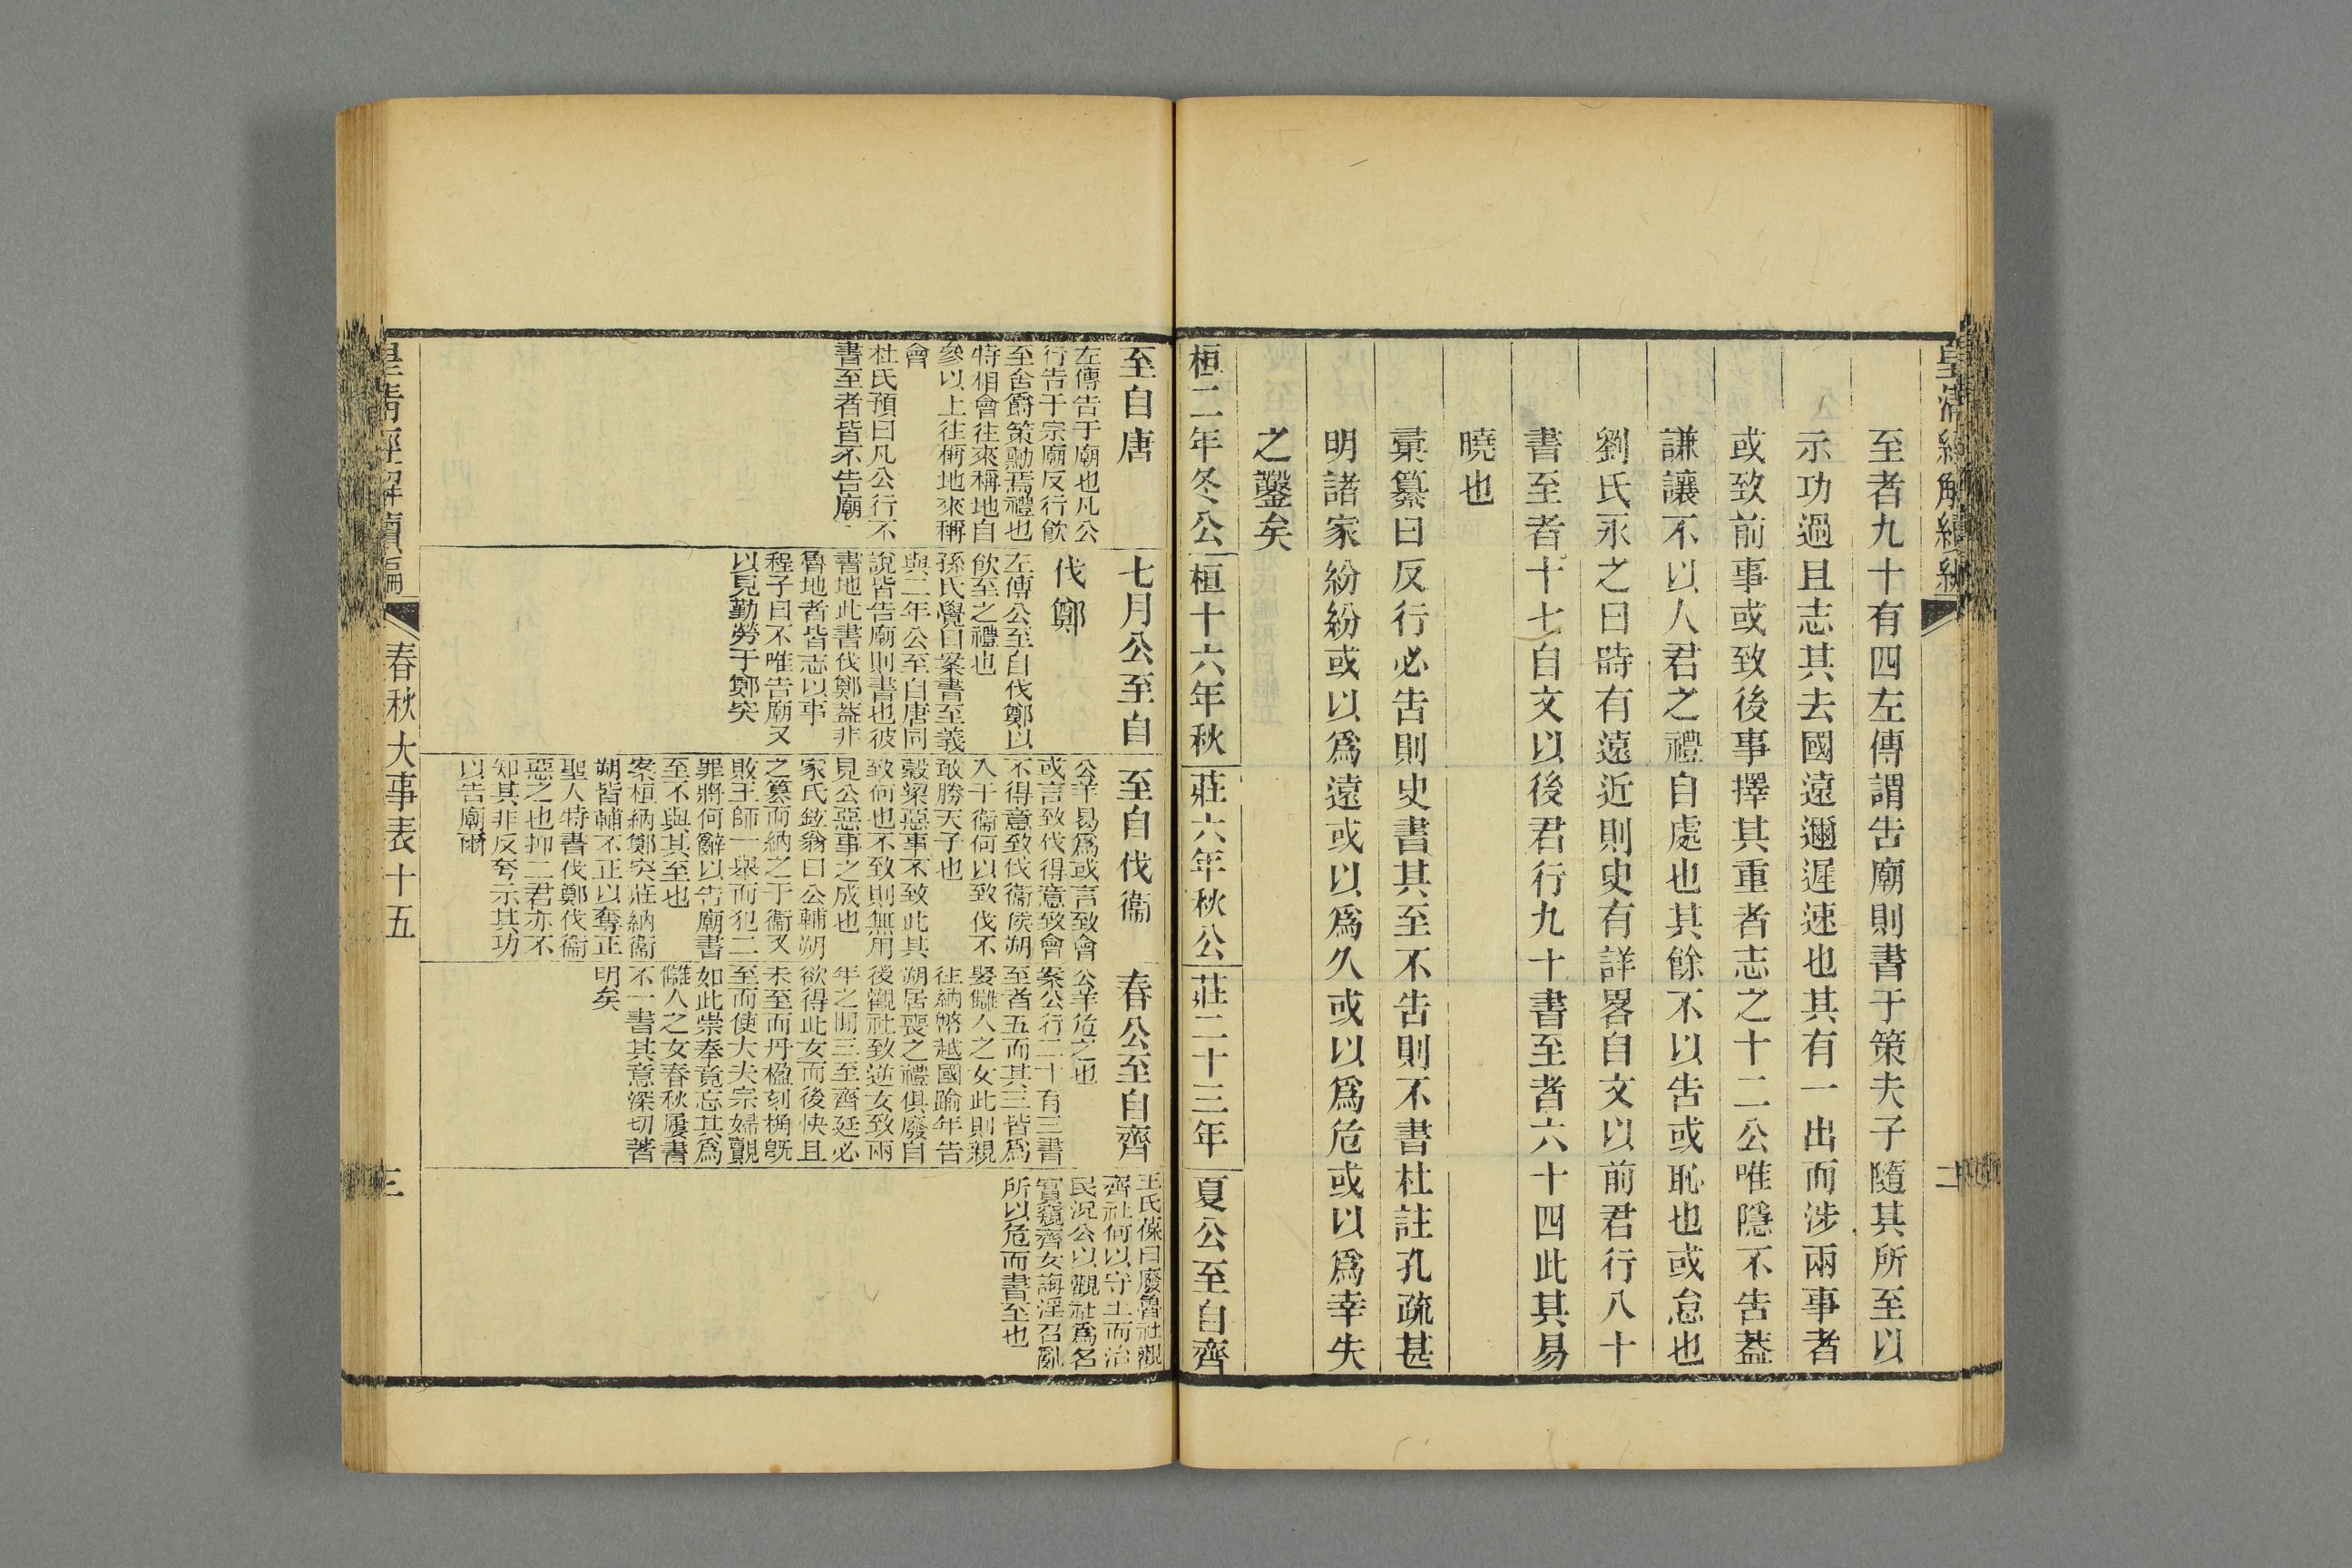 皇清經解續編
二
至者九十有四左傳謂告廟則書于策夫子隨其所至以
示功過且志其去國遠邇遲速也其有一出而涉兩事者
或致前事或致後事擇其重者志之十二公唯隱不告葢
謙讓不以人君之禮自處也其餘不以告或恥也或怠也
劉氏永之曰時有遠近則史有詳畧自文以前君行八十
書至者十七自文以後君行九十書至者六十四此其易
曉也
彚纂曰反行必告則史書其至不告則不書杜註孔疏甚
明諸家紛紛或以爲遠或以爲久或以爲危或以爲幸失
之鑿矣
桓二年冬公
桓十六年秋
莊六年秋公
莊二十三年
夏公至自齊
至自唐
左傳告于廟也凡公
行告于宗廟反行飮
至舍爵策勳焉禮也
特相會往來稱地自
參以上往稱地來稱
會
杜氏預曰凡公行不
書至者皆不告廟
七月公至自
伐鄭
左傳公至自伐鄭以
飮至之禮也
孫氏覺曰案書至義
與二年公至自唐同
說皆告廟則書也彼
書地此書伐鄭葢非
魯地者皆志以事
程子曰不唯告廟又
以見勤勞于鄭突
至自伐衞
公羊曷爲或言致會
或言致伐得意致會
不得意致伐衞侯朔
入于衞何以致伐不
敢勝天子也
穀梁惡事不致此其
致何也不致則無用
見公惡事之成也
家氏鉉翁曰公輔朔
之簒而納之于衞又
敗王師一舉而犯二
罪將何辭以告廟書
至不與其至也
案桓納鄭突莊納衞
朔皆輔不正以奪正
聖人特書伐鄭伐衞
惡之也抑二君亦不
知其非反夸示其功
以告廟爾
春公至自齊
公羊危之也
案公行二十有三書
至者五而其三皆爲
娶讎人之女此則親
往納幣越國踰年告
朔居喪之禮俱廢自
後觀社致逆女致兩
年之閒三至齊廷必
欲得此女而後快且
未至而丹楹刻桷旣
至而使大夫宗婦覿
如此崇奉竟忘其爲
讎人之女春秋屢書
不一書其意深切著
明矣
王氏葆曰廢魯社觀
齊社何以守土而治
民況公以觀社爲名
實窺齊女誨淫召亂
所以危而書至也
皇淸經解續編
春秋大事表十五
三